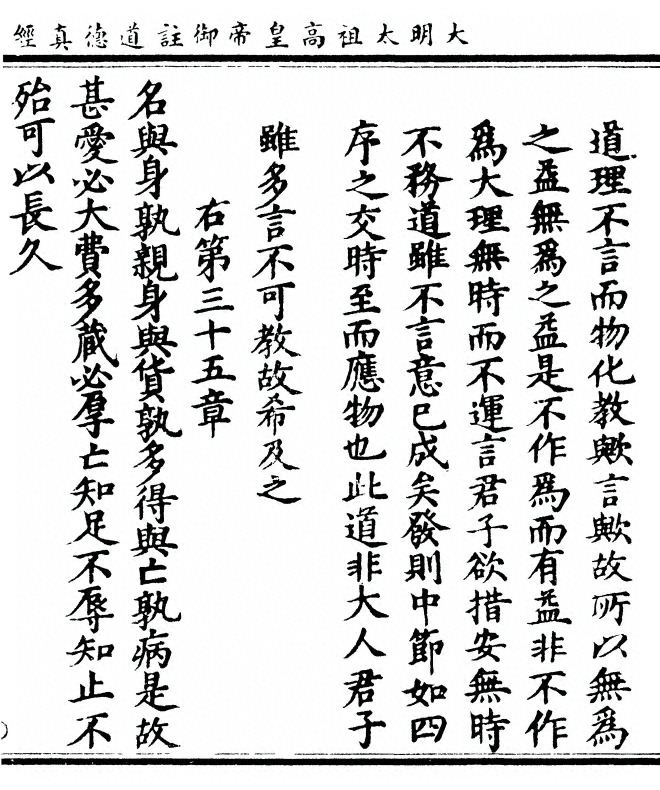 大明太祖高皇帝御註道德真經
道理不言而物化教歟言歟故所以無爲
之益無爲之益是不作爲而有益非不作
爲大理無時而不運言君子欲措安無時
不務道雖不言意已成矣發則中節如四
序之交時至而應物也此道非大人君子
雖多言不可教故希及之
右第三十五章
名與身孰親身與貨孰多得與亡孰病是故
甚愛必大費多藏必厚亡知足不辱知止不
殆可以長久